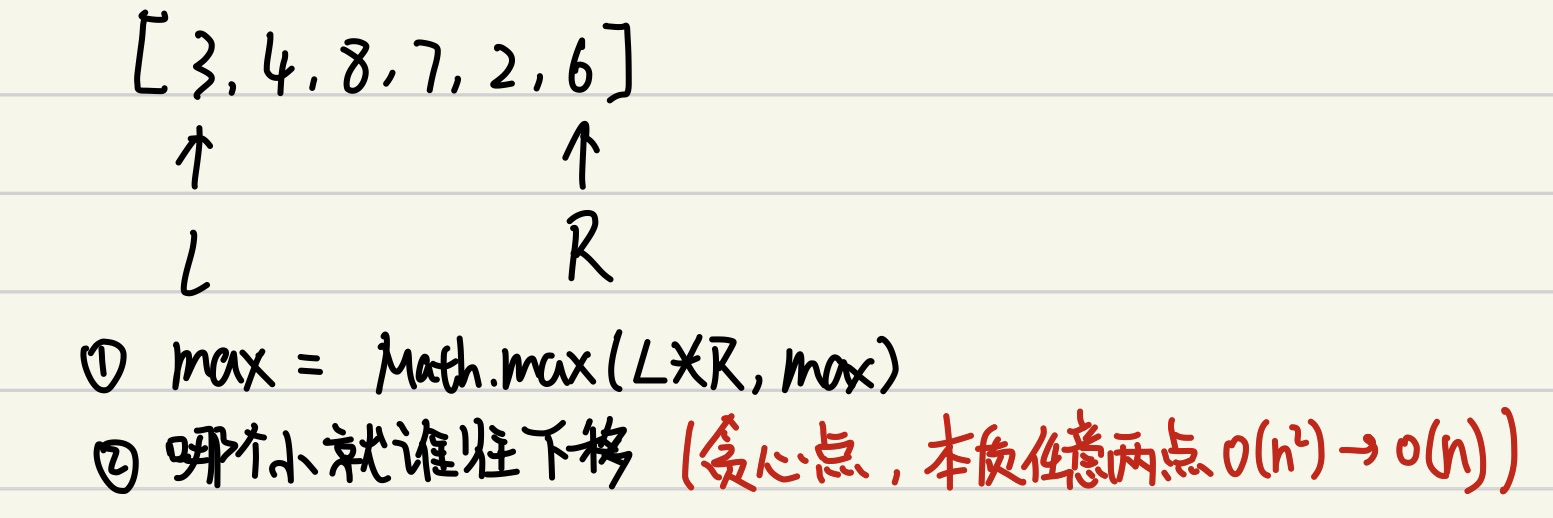 [3, 4, 8, 7, 2, 6]
↑ ↑
L R
① max = Math.max(L*R, max)
② 哪个小就谁往下移 (贪心点, 本质任意两点 O(n²) → O(n))